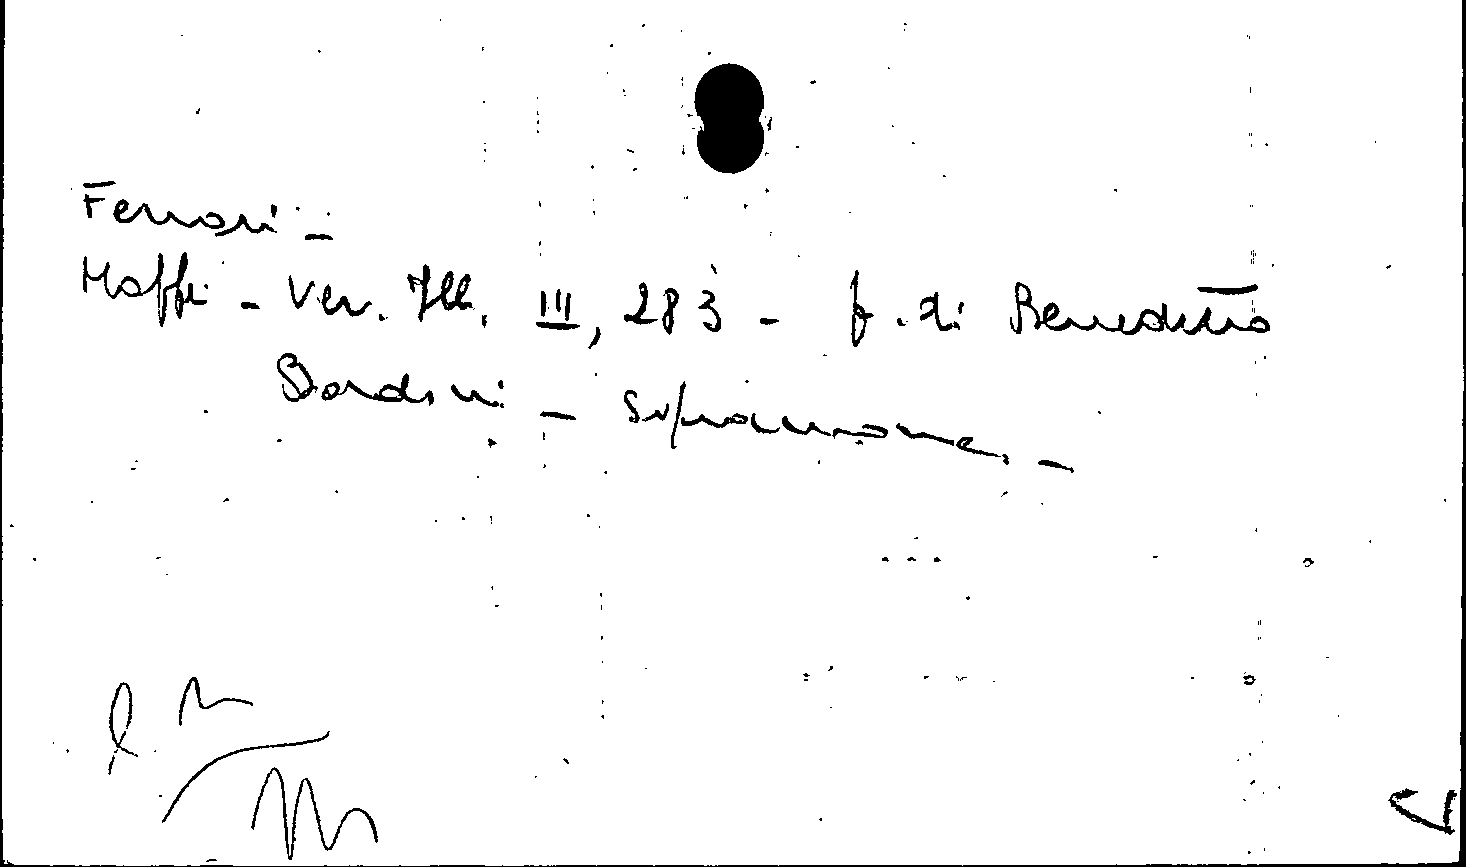 Ferrari -
Maffei - Ver. Ill. III, 283 - f. di Benedetto
Bordoni - Soprannome. -